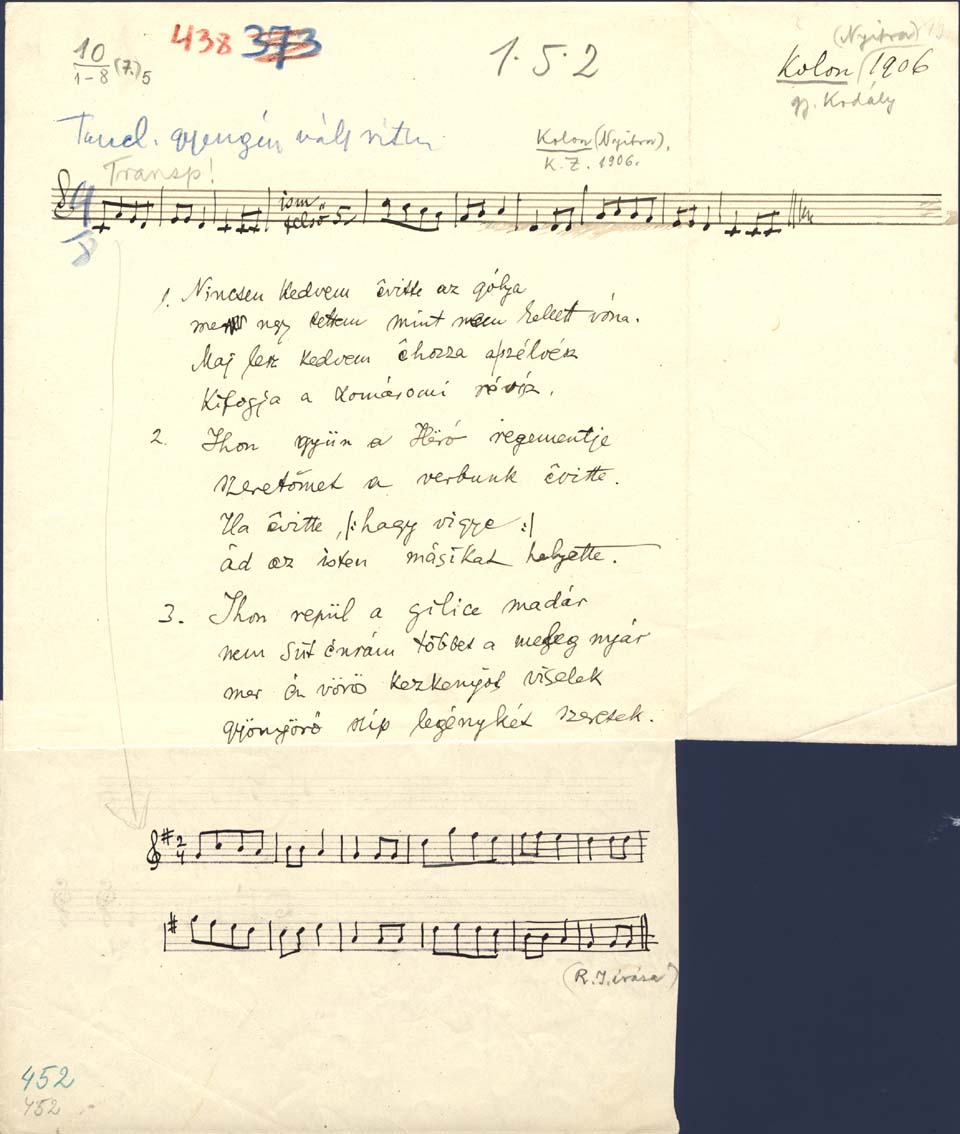 10
1-8 (7.) 5
438 373
1.5.2
(Nyitra)
Kolon 1906
gy. Kodály
Kolon (Nyitra),
K. Z. 1906.
Transp!
ism
felső 5
1. Nincsen kedvem êvitte az gólya
mer ugy ëttem mint nem kellett vóna.
Maj lesz kedvem êhozza a szélvész
Kifogja a komáromi révész.
2. Ihon gyün a Hëró regementje
szeretőmet a verbunk êvitte.
Ha êvitte, /: hagy vigye :/
ád az isten másikat helyette.
3. Ihon repül a gilice madár
nem süt énrám többet a meleg nyár
mer én vörös kezkenyőt viselek
gyönyörő szíp legénykét szeretek.
2
4
(R. I. írása)
452
452